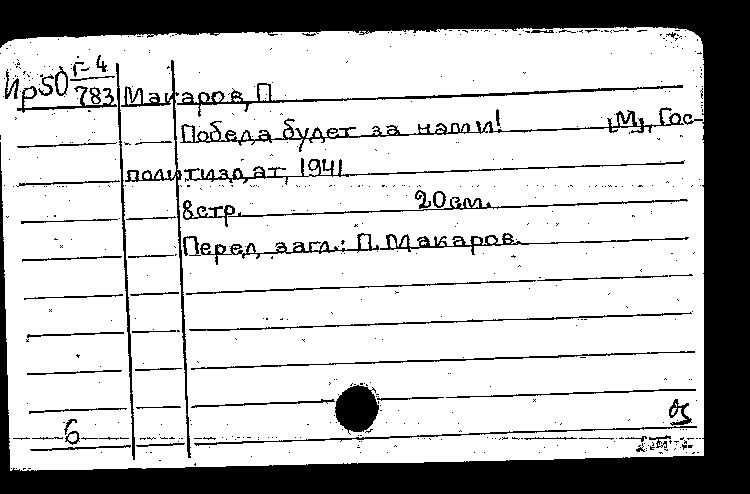 Ир50 Г-4
783 Макаров, П.
Победа будет за нами! [М], Гос-
политиздат, 1941.
8стр. 20см.
Перед загл.: П. Макаров.
6